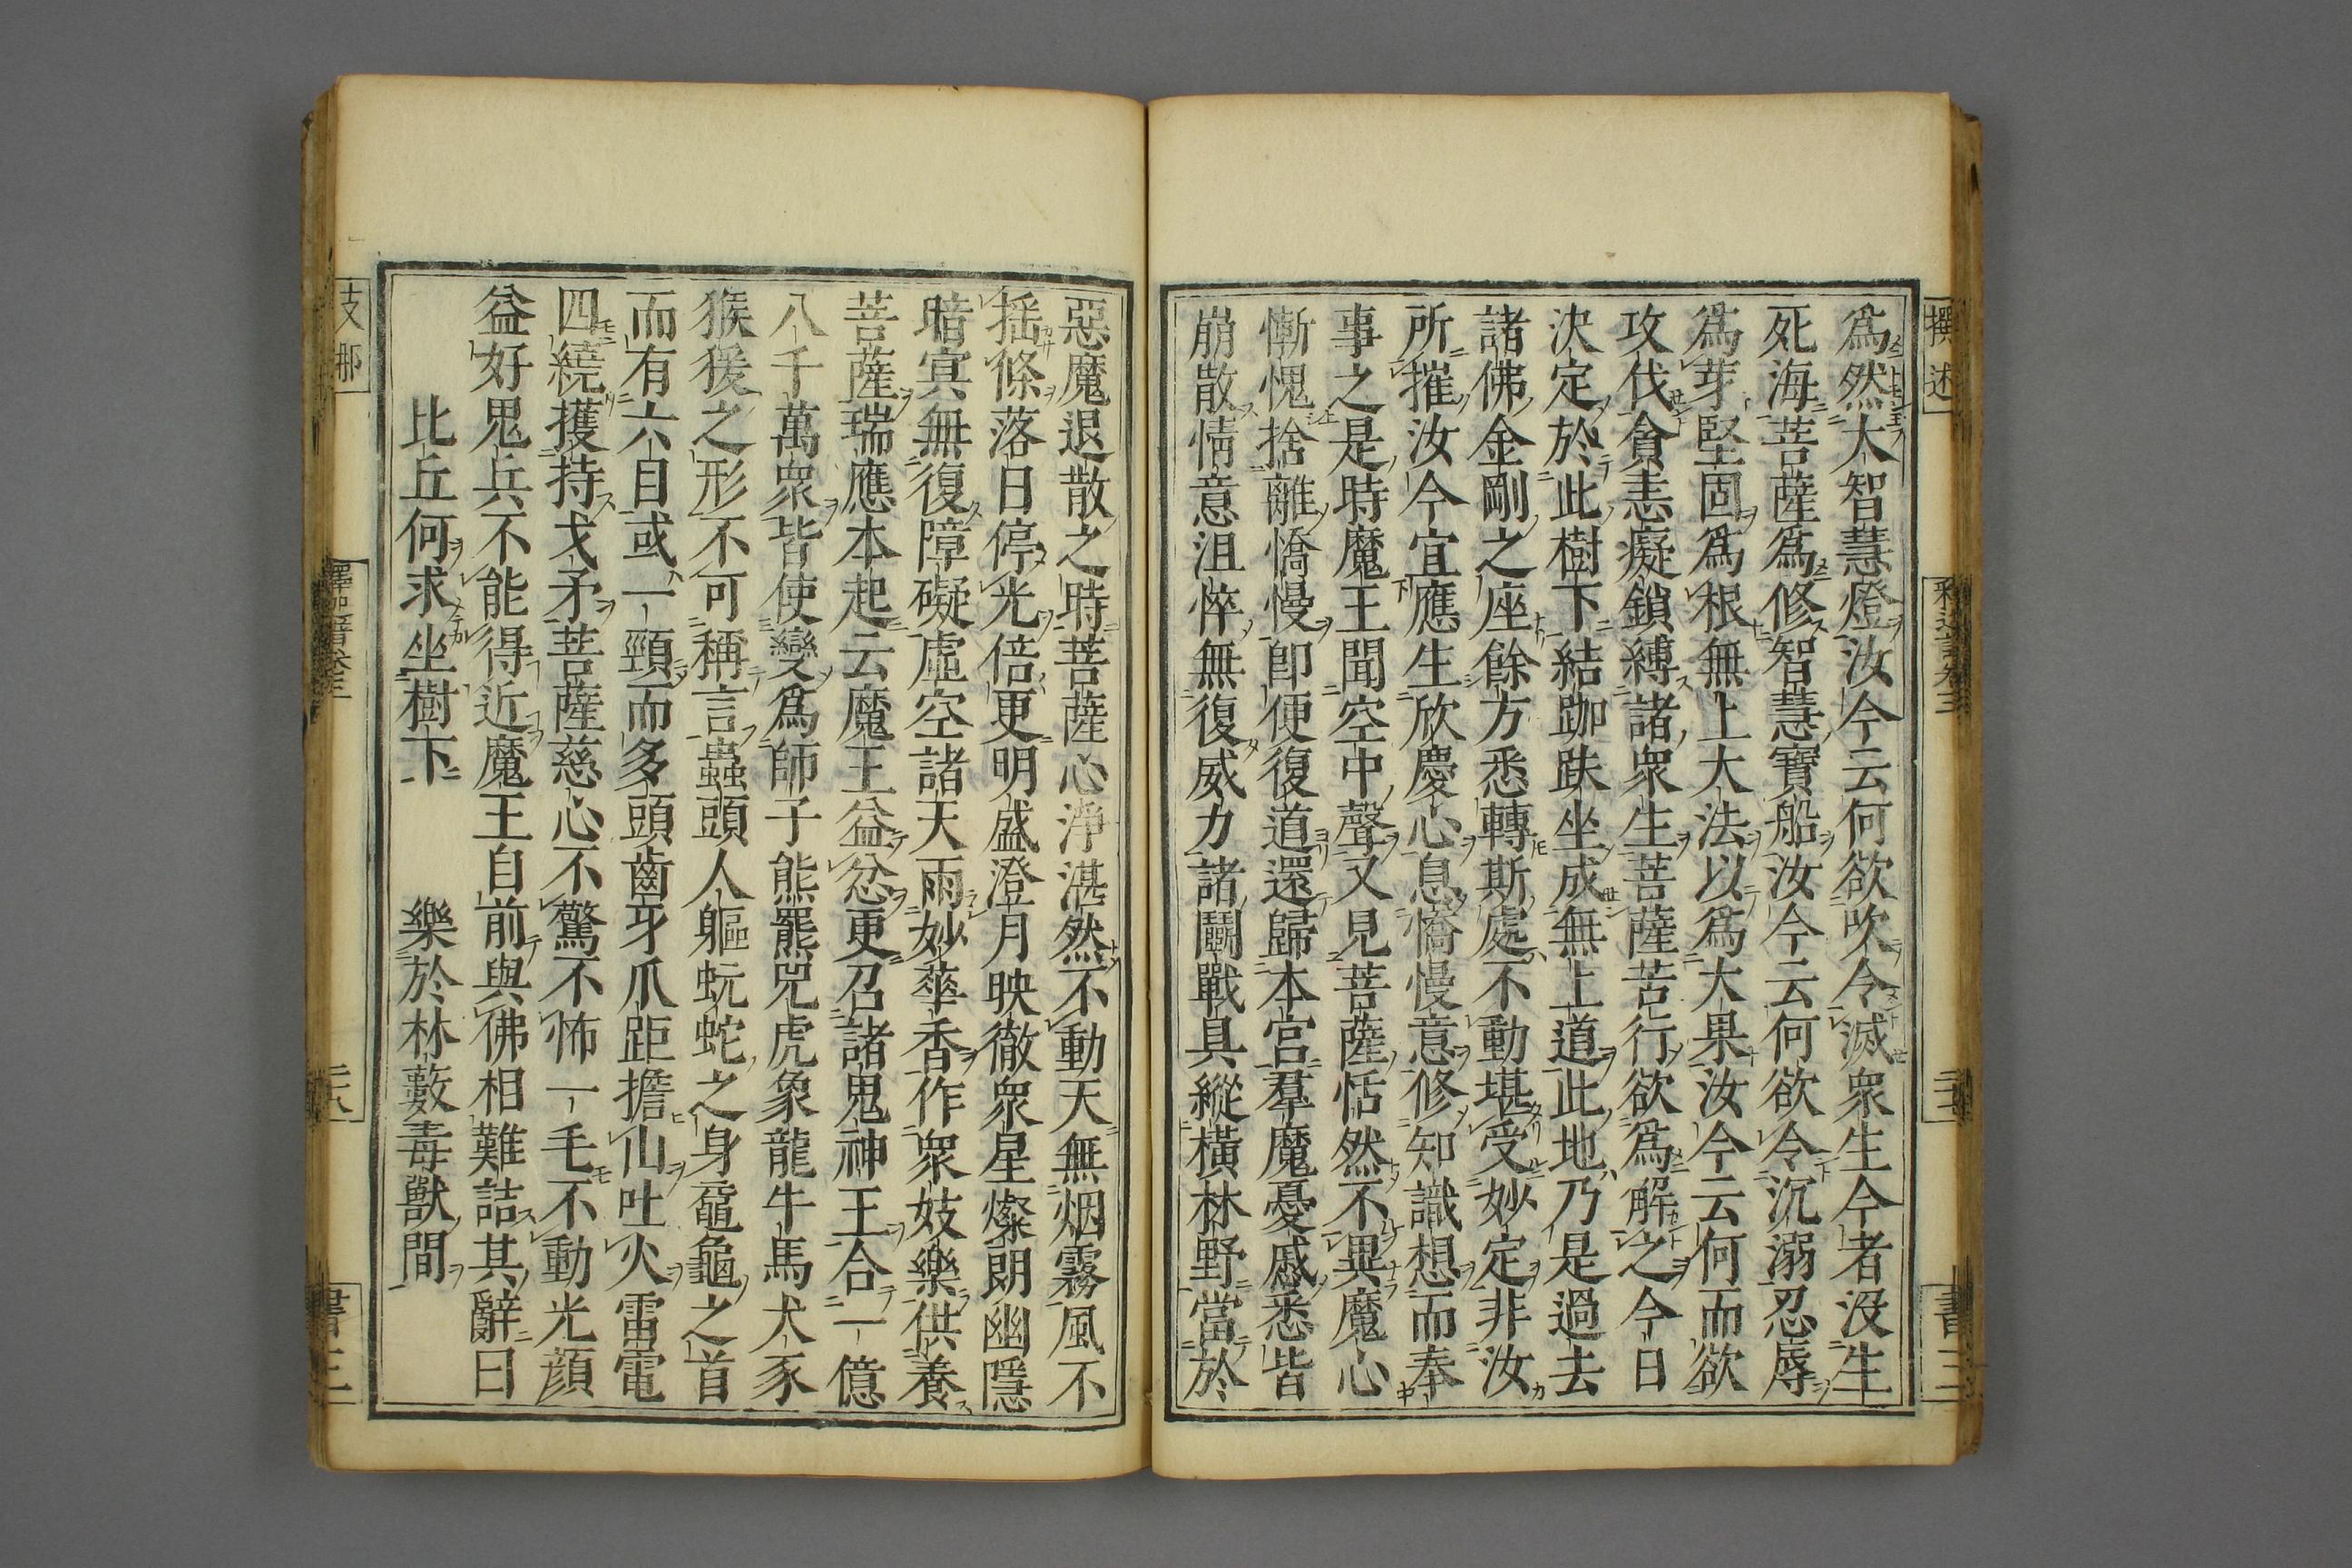 爲然大智慧燈汝今云何欲吹令滅衆生今者没生
死海菩薩爲修智慧寶船汝今云何欲令沉溺忍辱
爲芽堅固爲根無上大法以爲大果汝今云何而欲
攻伐貪恚癡鎖縛諸衆生菩薩苦行欲爲解之今日
決定於此樹下結跏趺坐成無上道此地乃是過去
諸佛金剛之座餘方悉轉斯處不動堪受妙定非汝
所摧汝今宜應生欣慶心息憍慢意修知識想而奉
事之是時魔王聞空中聲又見菩薩恬然不異魔心
慚愧捨離憍慢即便復道還歸本宮羣魔憂慼悉皆
崩散情意沮悴無復威力諸鬭戰具縱橫林野當於
惡魔退散之時菩薩心淨湛然不動天無烟霧風不
揺條落日停光倍更明盛澄月映徹衆星燦朗幽隱
暗㝠無復障礙虛空諸天雨妙華香作衆妓樂供養
菩薩瑞應本起云魔王益忿更召諸鬼神王合一億
八千萬衆皆使變爲師子熊羆兕虎象龍牛馬犬豕
猴猨之形不可稱言蟲頭人軀蚖蛇之身黿龜之首
而有六目或一頸而多頭齒牙爪距擔山吐火雷電
四繞擭持戈矛菩薩慈心不驚不怖一毛不動光顔
益好鬼兵不能得近魔王自前與佛相難詰其辭曰
比丘何求坐樹下　樂於林藪毒獸間
撰述
支那
書三
書三